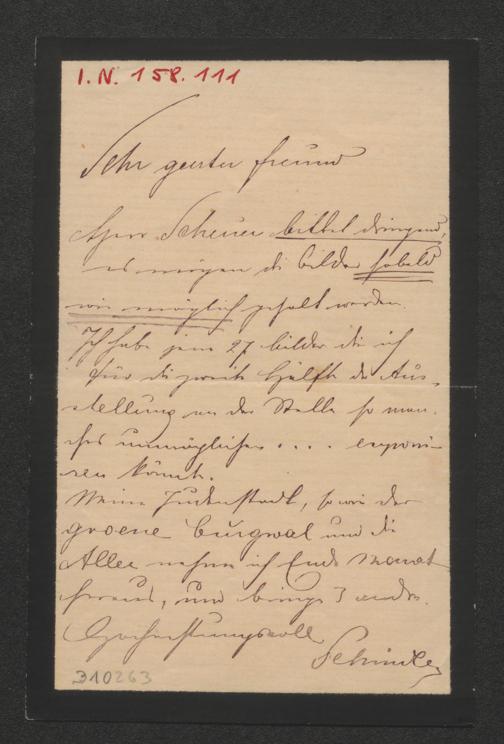 I.N. 158.111
Sehr geerter Freund
Herr Scheuer bittet dringend,
es mögen die bilder sobald
wie möglich geholt werden.
Ich habe jene 27 bilder die ich
für die zweite Hälfte der Aus-
stellung an der Stelle so man-
ches unmöglichen .... exponi-
ren könnte.
Meine Judenstadt, sowie der
groene burgwal und die
Allee nehme ich Ende Monat
heraus, und bringe 3 andre.
Hochachtungsvoll
Schindler
310263